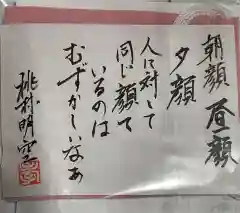 朝顔 昼顔
夕顔
人に対して
同じ顔で
いるのは
むずかしいなぁ
桃村明空